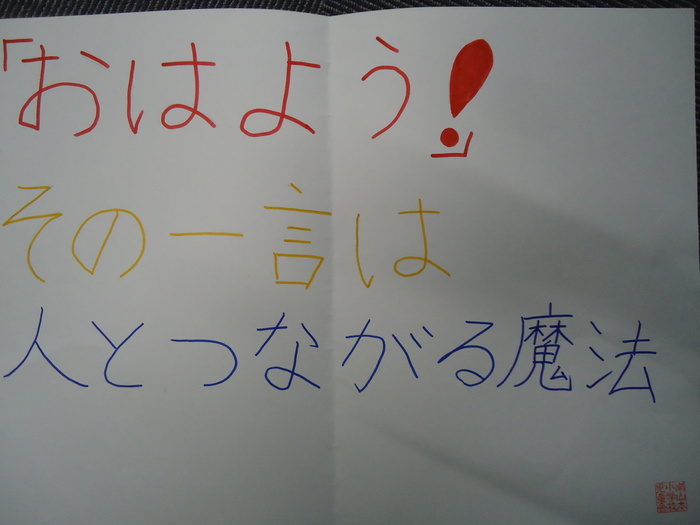 「おはよう!」
その一言は
人とつながる魔法